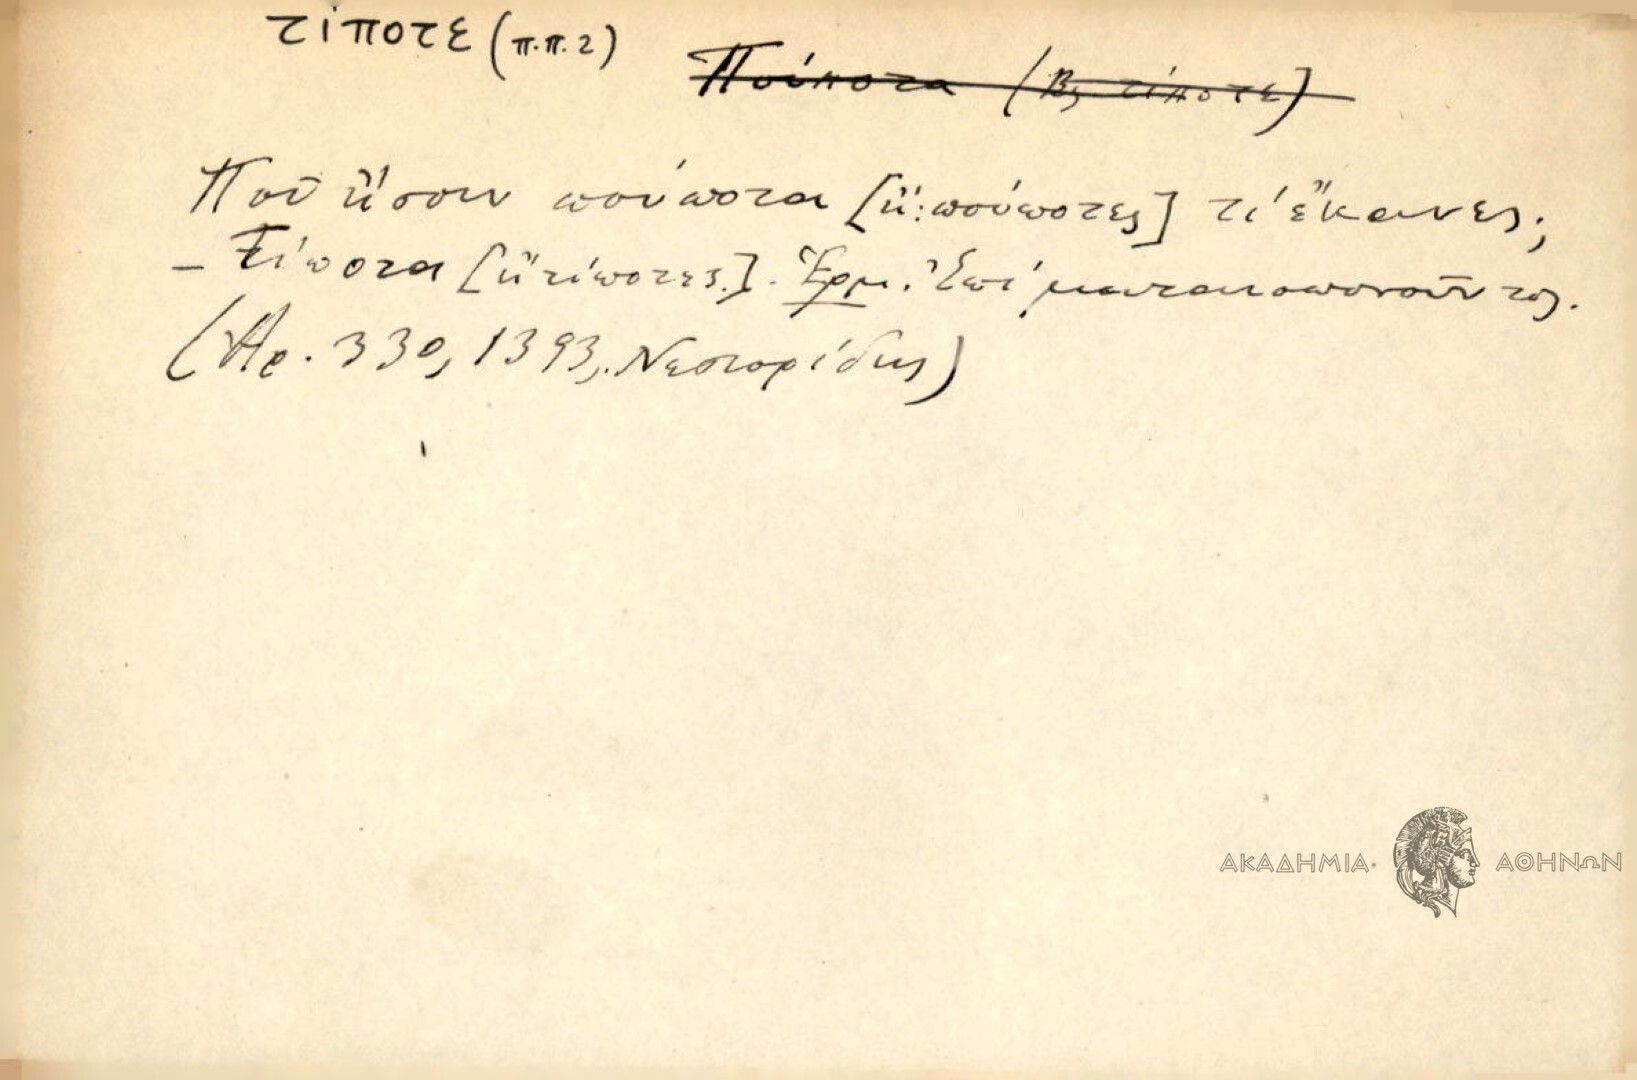 τίποτε (π.π. 2)
Πούποτα (Βλ. τίποτε)
Ποῦ ἤσουν πούποτα [ἤ: πούποτες] τί ἔκανες;
– Τίποτα [ἤ τίποτες]. Ἑρμ. Ἐπὶ ματαιοπονοῦντος.
(Ἀρ. 330, 1393, Νεστορίδης)
ΑΚΑΔΗΜΙΑ ΑΘΗΝΩΝ